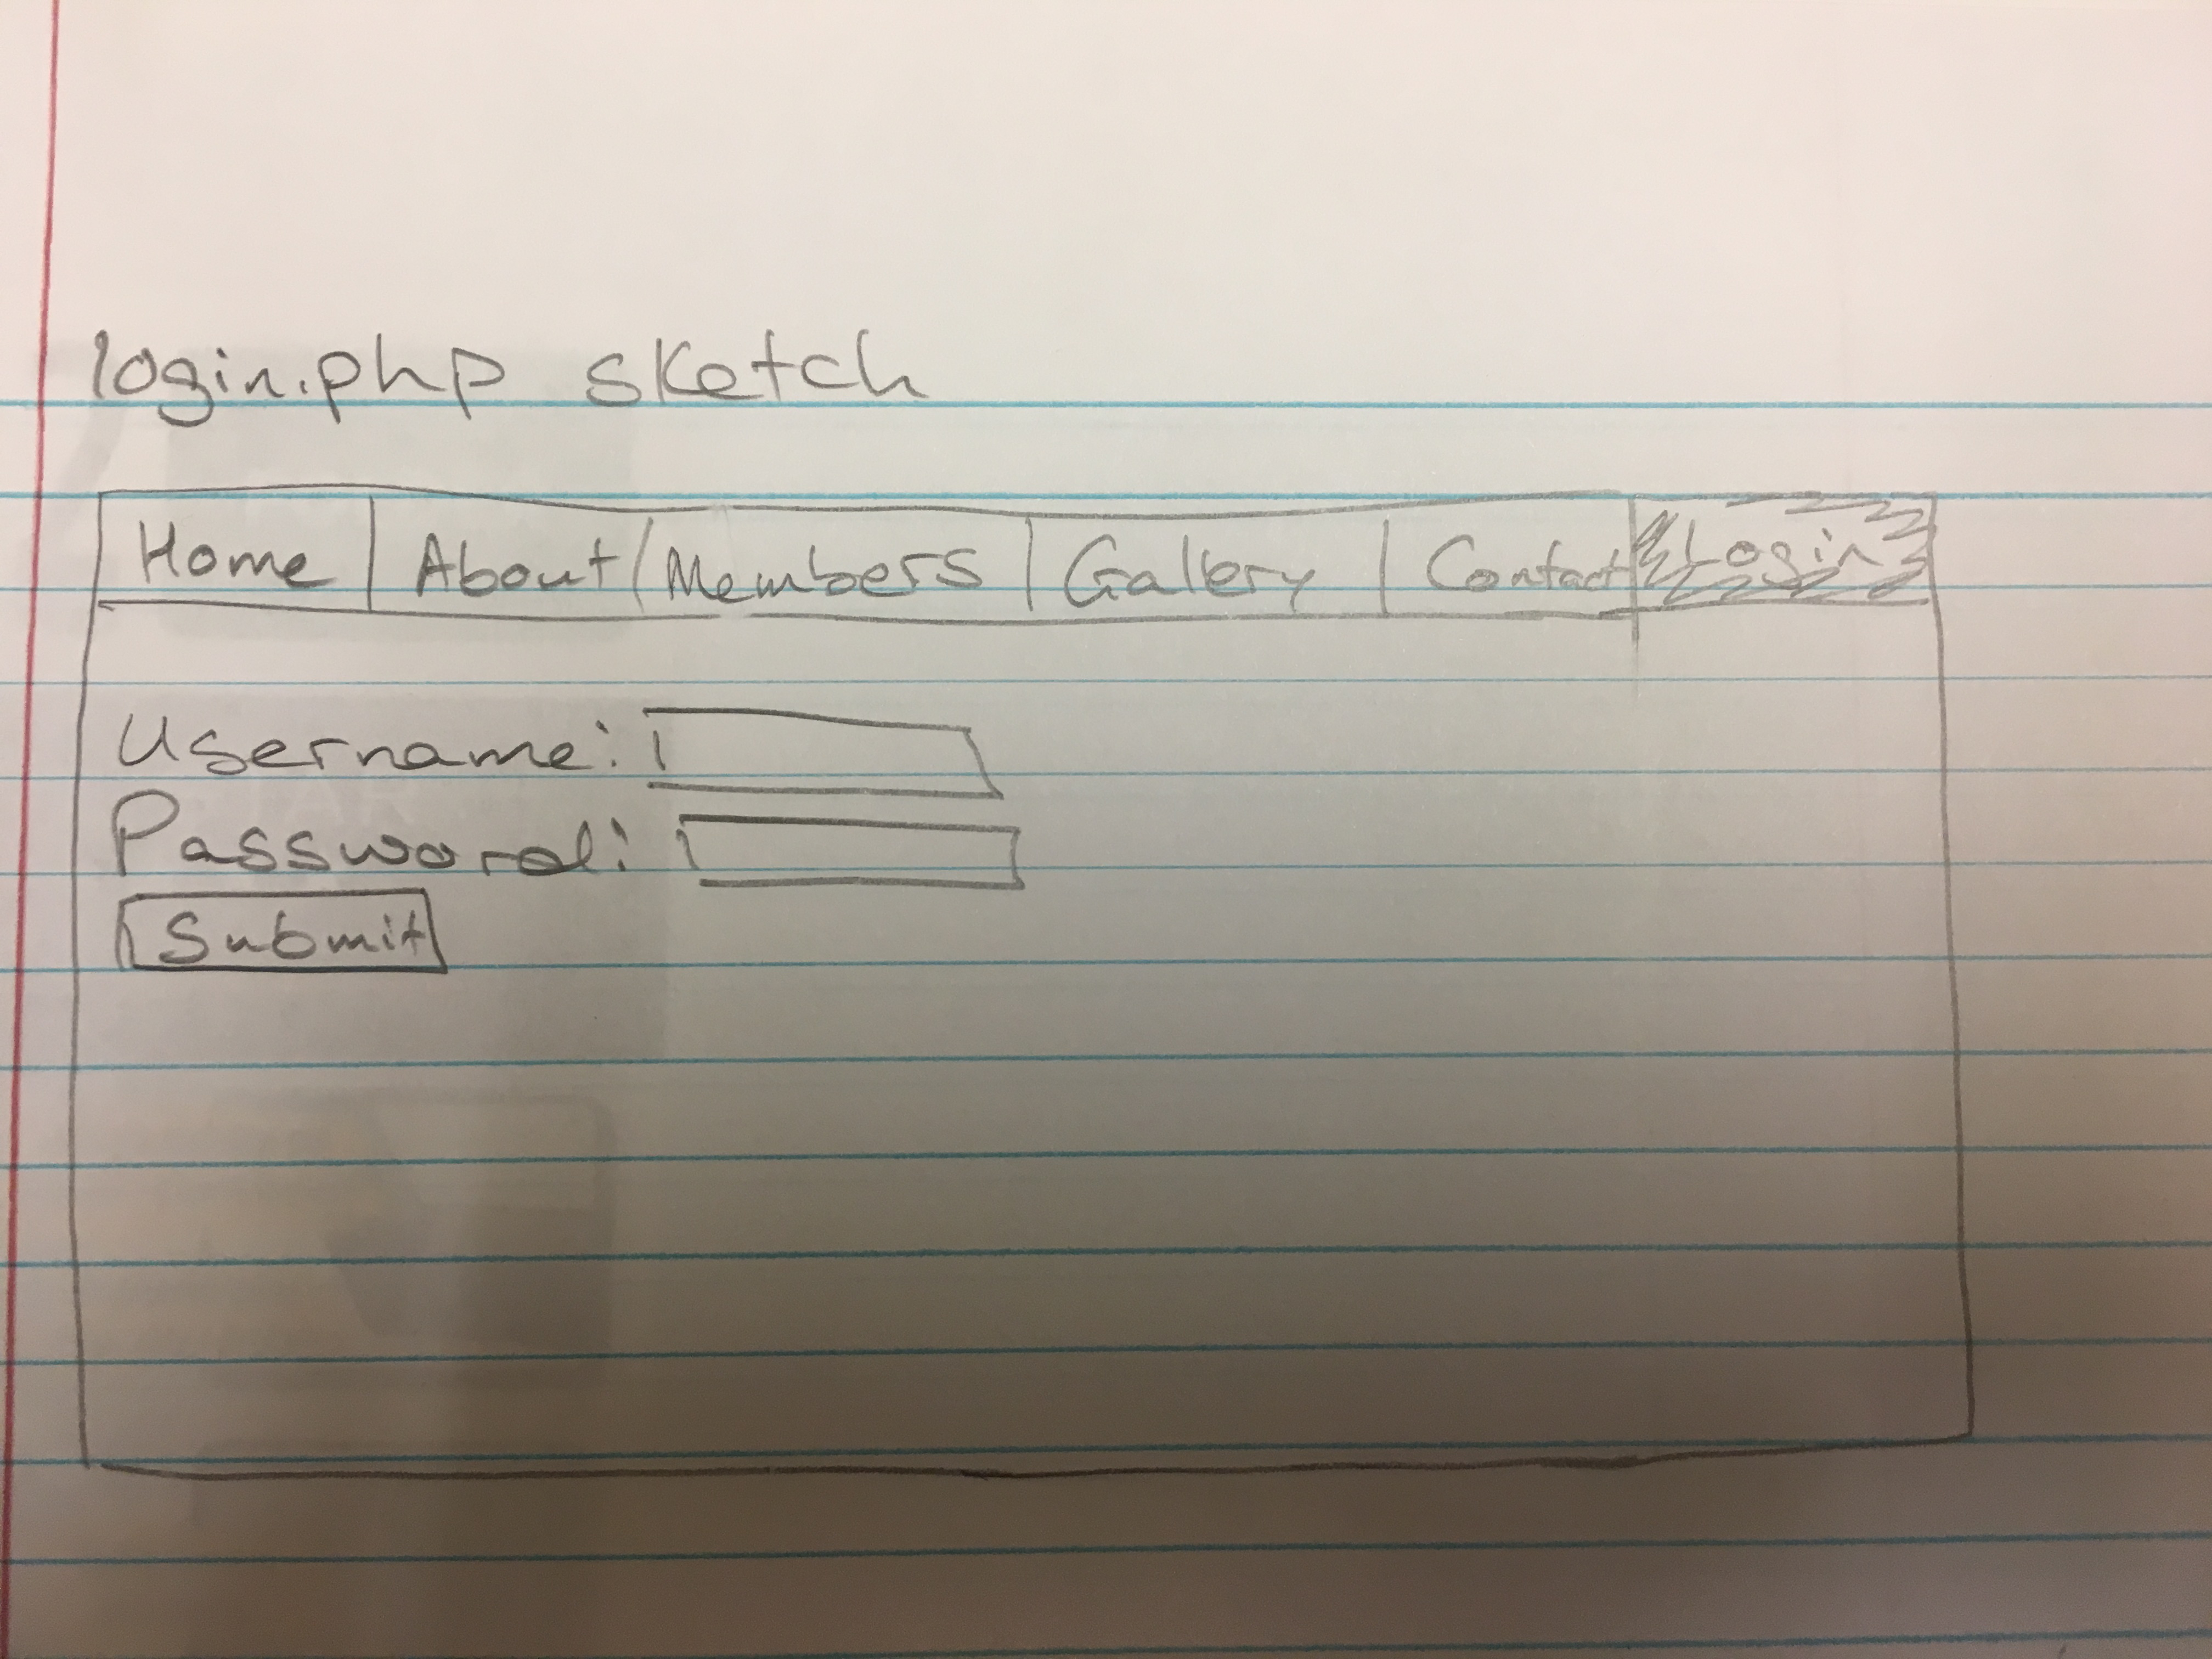 login.php sketch
Home | About | Members | Gallery | Contact | Login
Username:
Password:
Submit